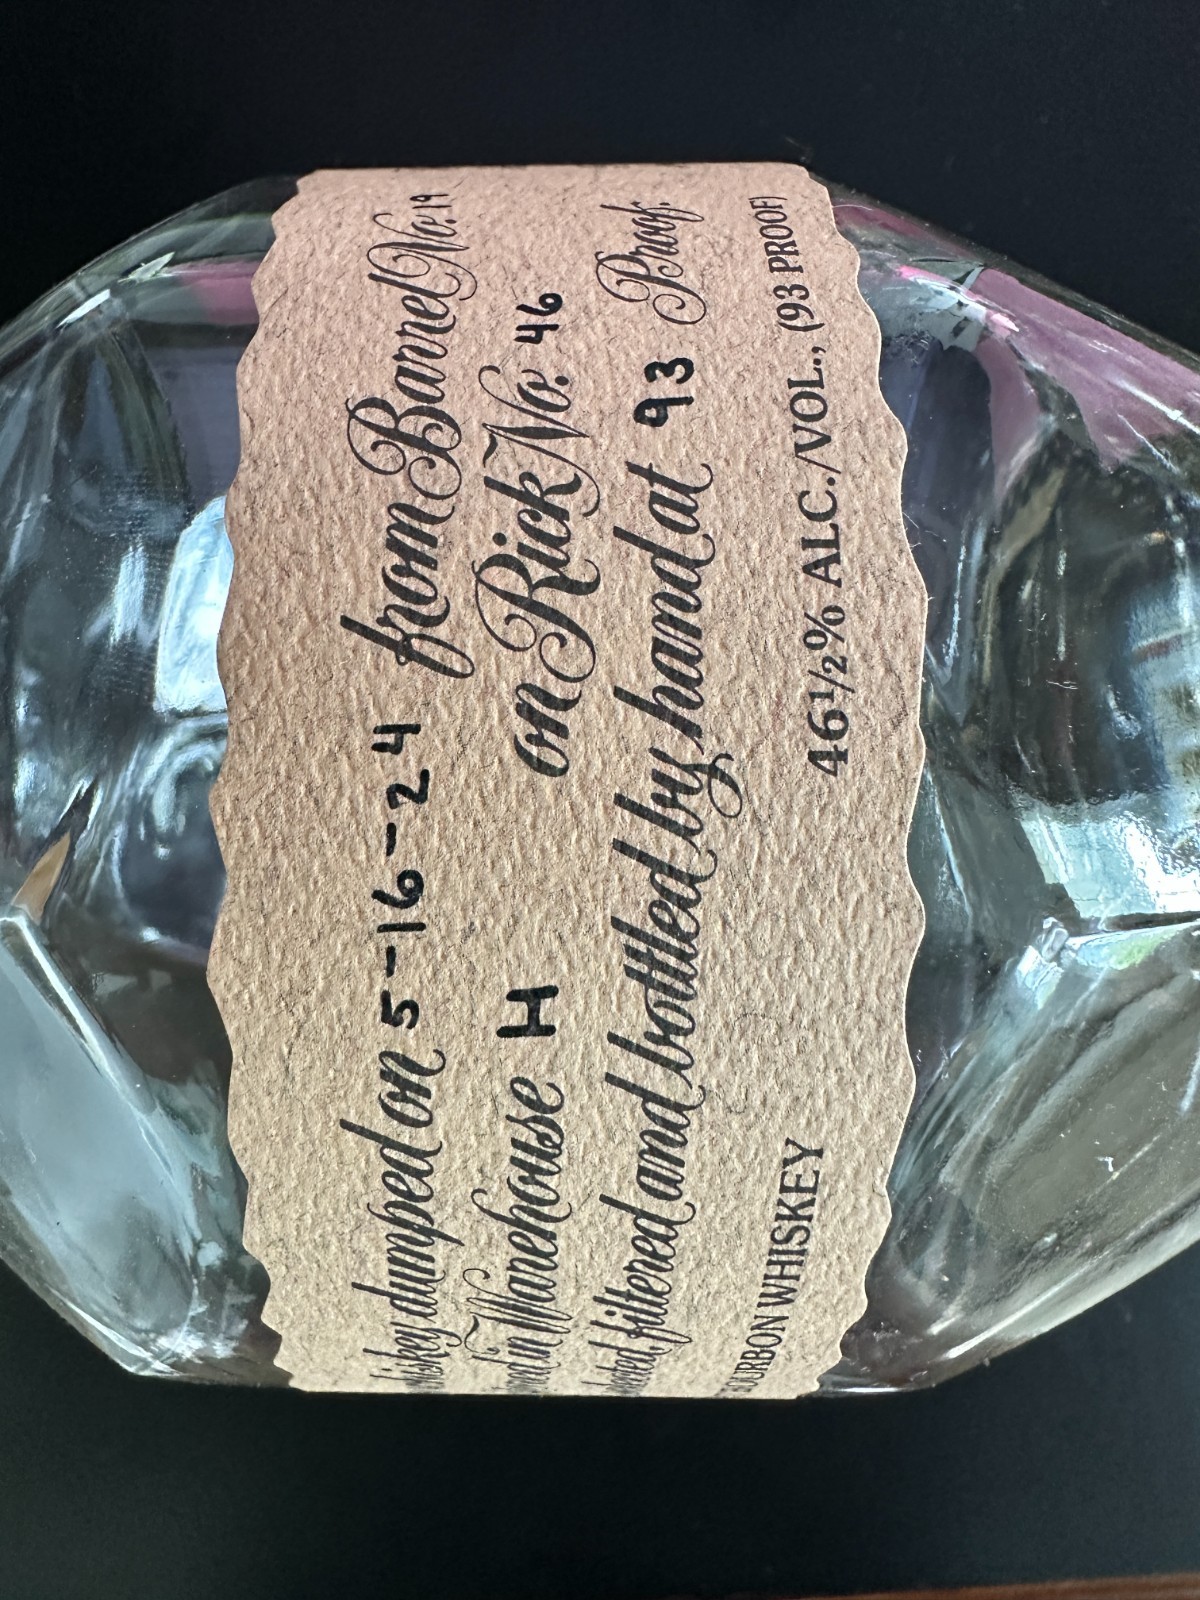 whiskey dumped on 5-16-24 from Barrel No. 19
in Warehouse H on Rick No. 46
filtered and bottled by hand at 93 Proof.
BOURBON WHISKEY 46½% ALC./VOL., (93 PROOF)